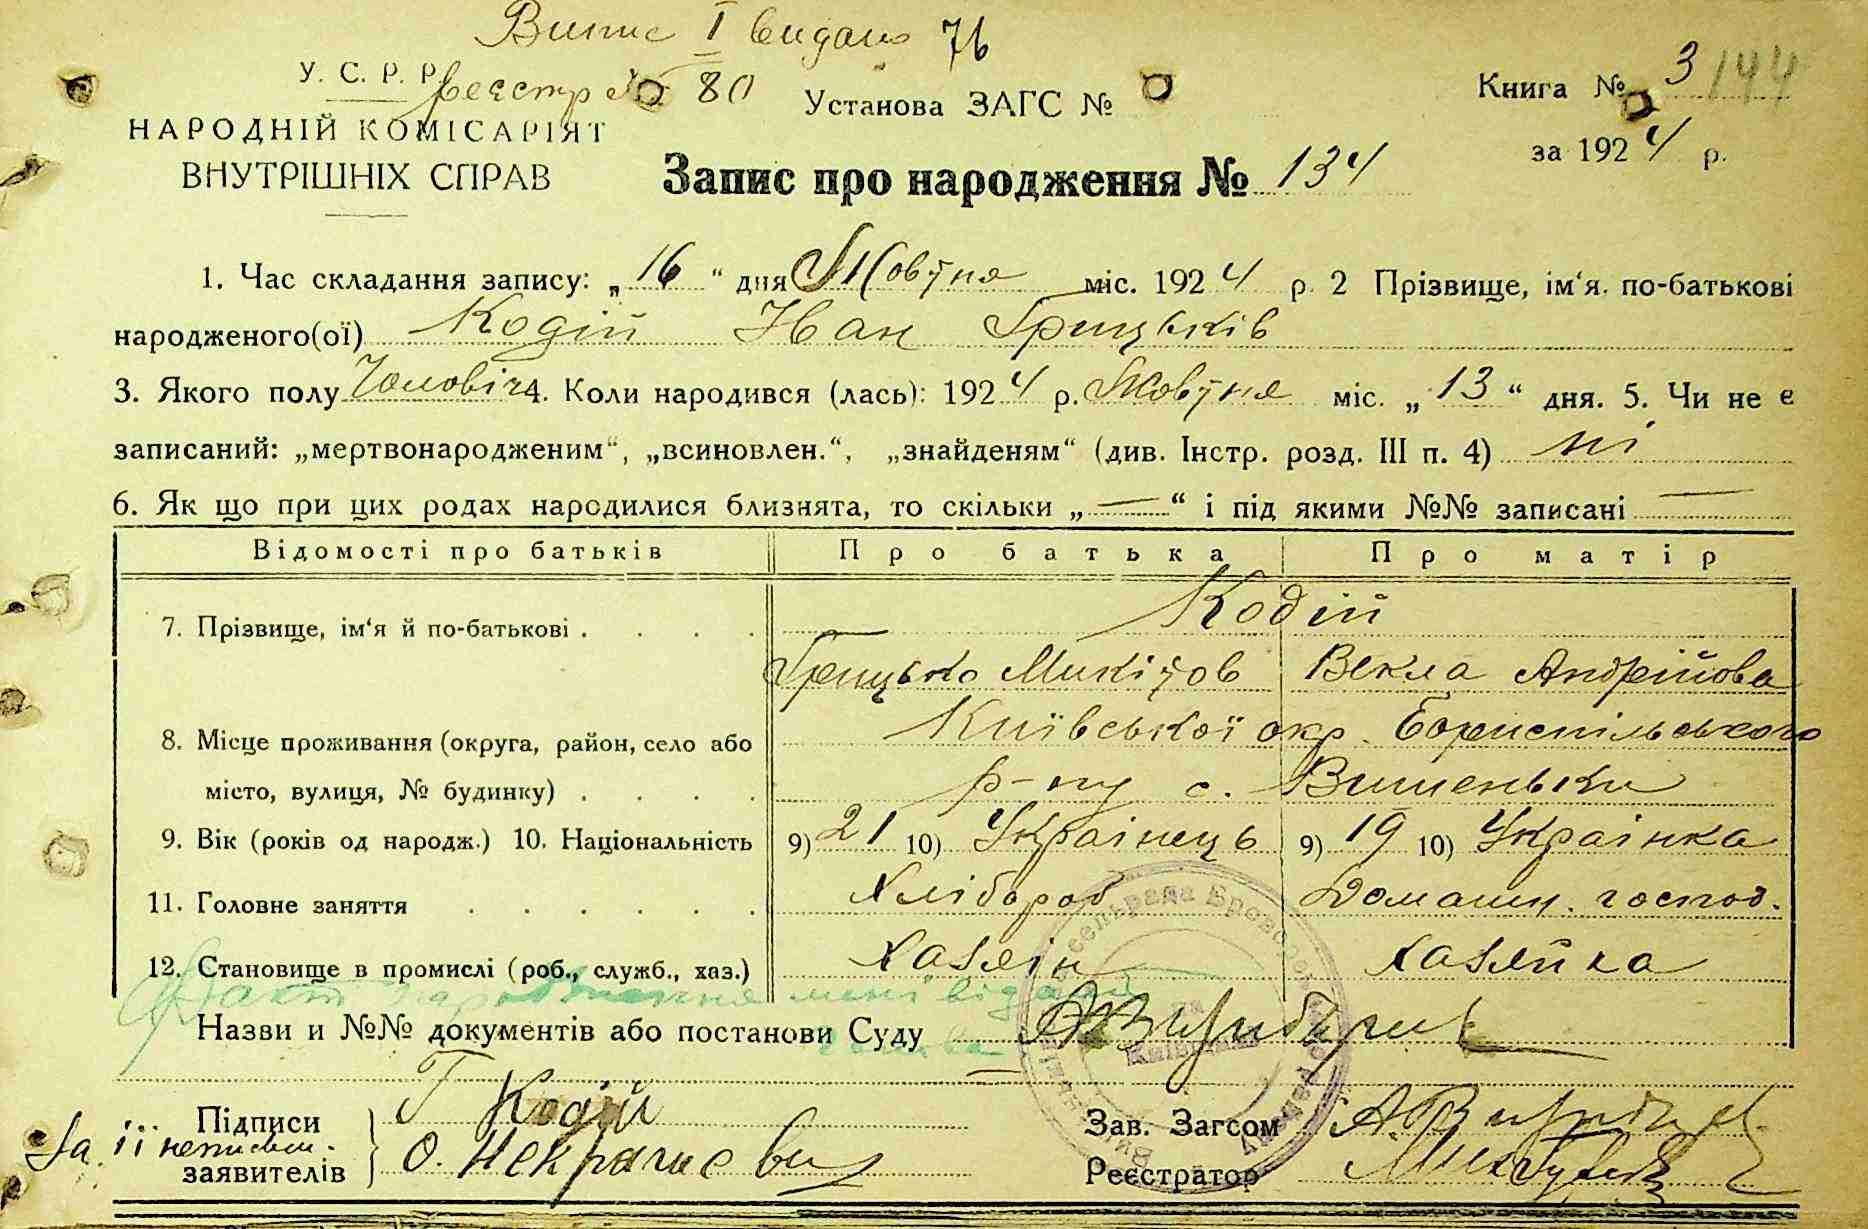 Випис I видано 76
У. С. Р. Р.
реєстр № 80
Установа ЗАГС №
Книга № 3 144
НАРОДНІЙ КОМІСАРІЯТ
ВНУТРІШНІХ СПРАВ
за 1924 р.
Запис про народження № 134
1. Час складання запису: „16“ дня Жовтня міс. 1924 р 2 Прізвище, ім‘я. по-батькові
народженого(ої) Кодій Іван Грицьків
3. Якого полу Чоловіч 4. Коли народився (лась): 1924 р. Жовтня міс. „13“ дня. 5. Чи не є
записаний: „мертвонародженим“, „всиновлен.“, „знайденям“ (див. Інстр. розд. III п. 4) ні
6. Як що при цих родах народилися близнята, то скільки „—“ і під якими №№ записані —
Відомості про батьків Про батька Про матір
7. Прізвище, ім‘я й по-батькові . . . . Кодій
Грицько Микітов Векла Андрійова
8. Місце проживання (округа, район, село або Київської окр. Бориспільського
місто, вулиця, № будинку) . . . . р-ну с. Вишеньки
9. Вік (років од народж.) 10. Національність 9) 21 10) Українець 9) 19 10) Українка
11. Головне заняття . . . . . . Хлібороб Домашн. господ.
12. Становище в промислі (роб., служб., хаз.) Хазяїн Хазяйка
Факт народження мені відомий
Назви и №№ документів або постанови Суду
Підписи Г Кодій
Зав. Загсом
За її неписьм.
заявителів О. Некрашеви
Реєстратор